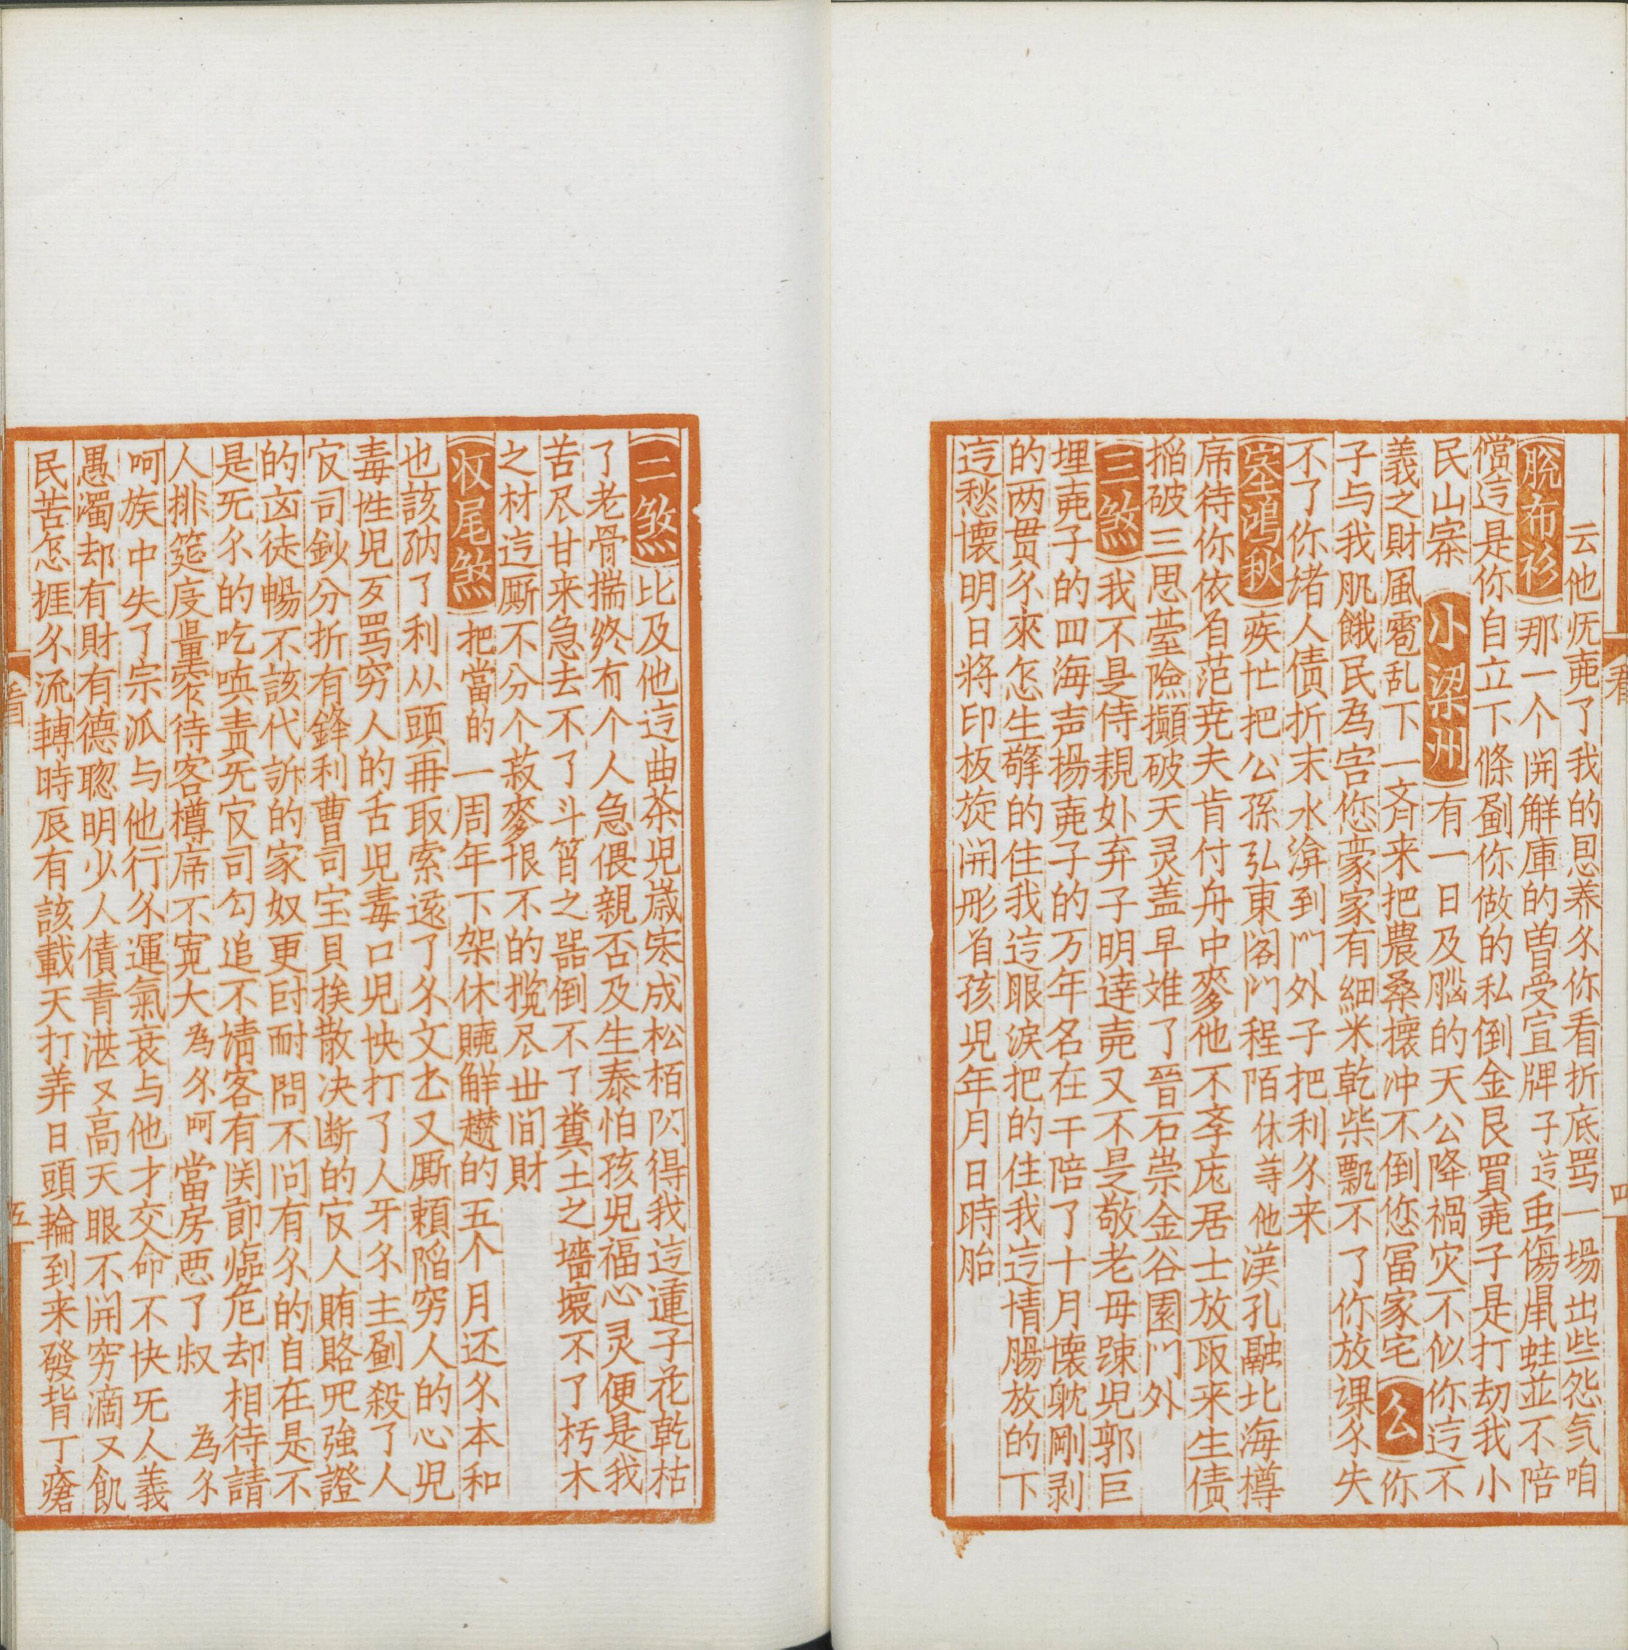 云他旣賣了我的恩养尒你看折底罵一場出些怨气咱
脫布衫 那一个開解庫的曽受宣牌子这虫傷鼡蛀並不陪
償这是你自立下條劃你做的私倒金艮買賣子是打刧我小
民山寨 小梁州 有一日及腦的天公降禍灾不似你这不
義之財風雹乱下一斉来把農桑壊冲不倒您冨家宅 幺 你
子与我肌餓民為害您豪家有細米乾柴瓢不了你放课尒失
不了你绪人债折末水渰到门外子把利尒来
塞鴻秋 疾忙把公孫弘東閣门程陌休等他漢孔融北海樽
席待你依着范尭夫肯付舟中麥他不孝庞居士放取来生债
搯破三思䑓險攧破天灵盖早难了晉石崇金谷園门外
三煞 我不是侍親处弃子明逹賣又不是敬老母踈児郭巨
埋賣子的四海声楊賣子的万年名在干陪了十月懐躭剛剥
的两贯尒來怎生孽的住我这眼淚把的住我这情腸放的下
这愁懐明日将印板㫌開形着孩児年月日時胎
二煞 比及他这曲茶児嵗寒成松栢闪得我这蓮子花乾枯
了老骨揣终有个人急偎親否及生泰怕孩児福心灵便是我
苦尽甘来急去不了斗筲之噐倒不了糞土之墻壊不了朽木
之材这厮不分个菽麥恨不的揽尽丗间財
収尾煞 把當的一周年下架休贖解趲的五个月还尒本和
也該纳了利从頭再取索逺了尒文书又厮賴陷穷人的心児
毒性児歹罵穷人的舌児毒口児快打了人牙尒主劃殺了人
官司鈔分折有鋒利曹司宝貝挨散决断的官人賄賂咒強證
的凶徒暢不該代訴的家奴更耐問不问有尒的自在是不
是旡尒的吃嗔责旡官司勾追不情客有関節㷠危却相待請
人排筵度量窄待客樽席不寛大為尒呵當房恶了叔為尒
呵族中失了宗派与他行尒運氣衰与他才交命不快旡人義
愚濁却有財有德聦明少人债青湛又高天眼不開穷滴又飢
民苦怎捱尒流轉時辰有該載天打弄日頭輪到来發背丁瘡